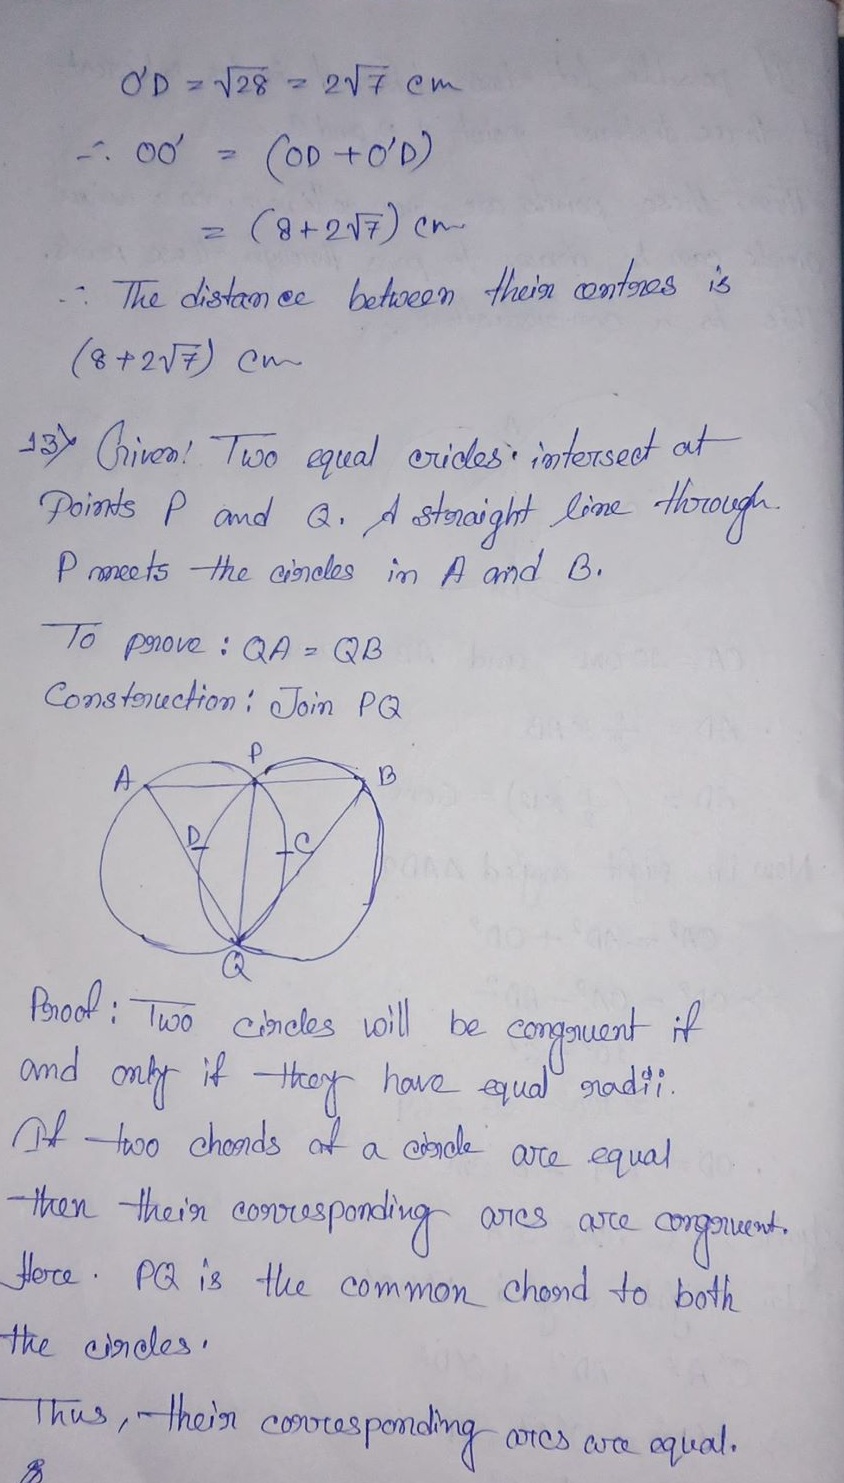 O'D = √28 = 2√7 cm
∴ OO' = (OD + O'D)
= (8+2√7) cm
∴ The distance between their centres is
(8+2√7) cm
13) Given: Two equal cricles intersect at
Points P and Q. A straight line through
P meets the circles in A and B.
To prove : QA = QB
Construction : Join PQ
P
A B
D C
Q
Proof : Two circles will be congruent if
and only if they have equal radii.
If two chords of a circle are equal
then their corresponding arcs are congruent.
Here. PQ is the common chord to both
the circles.
Thus, their corresponding arcs are equal.